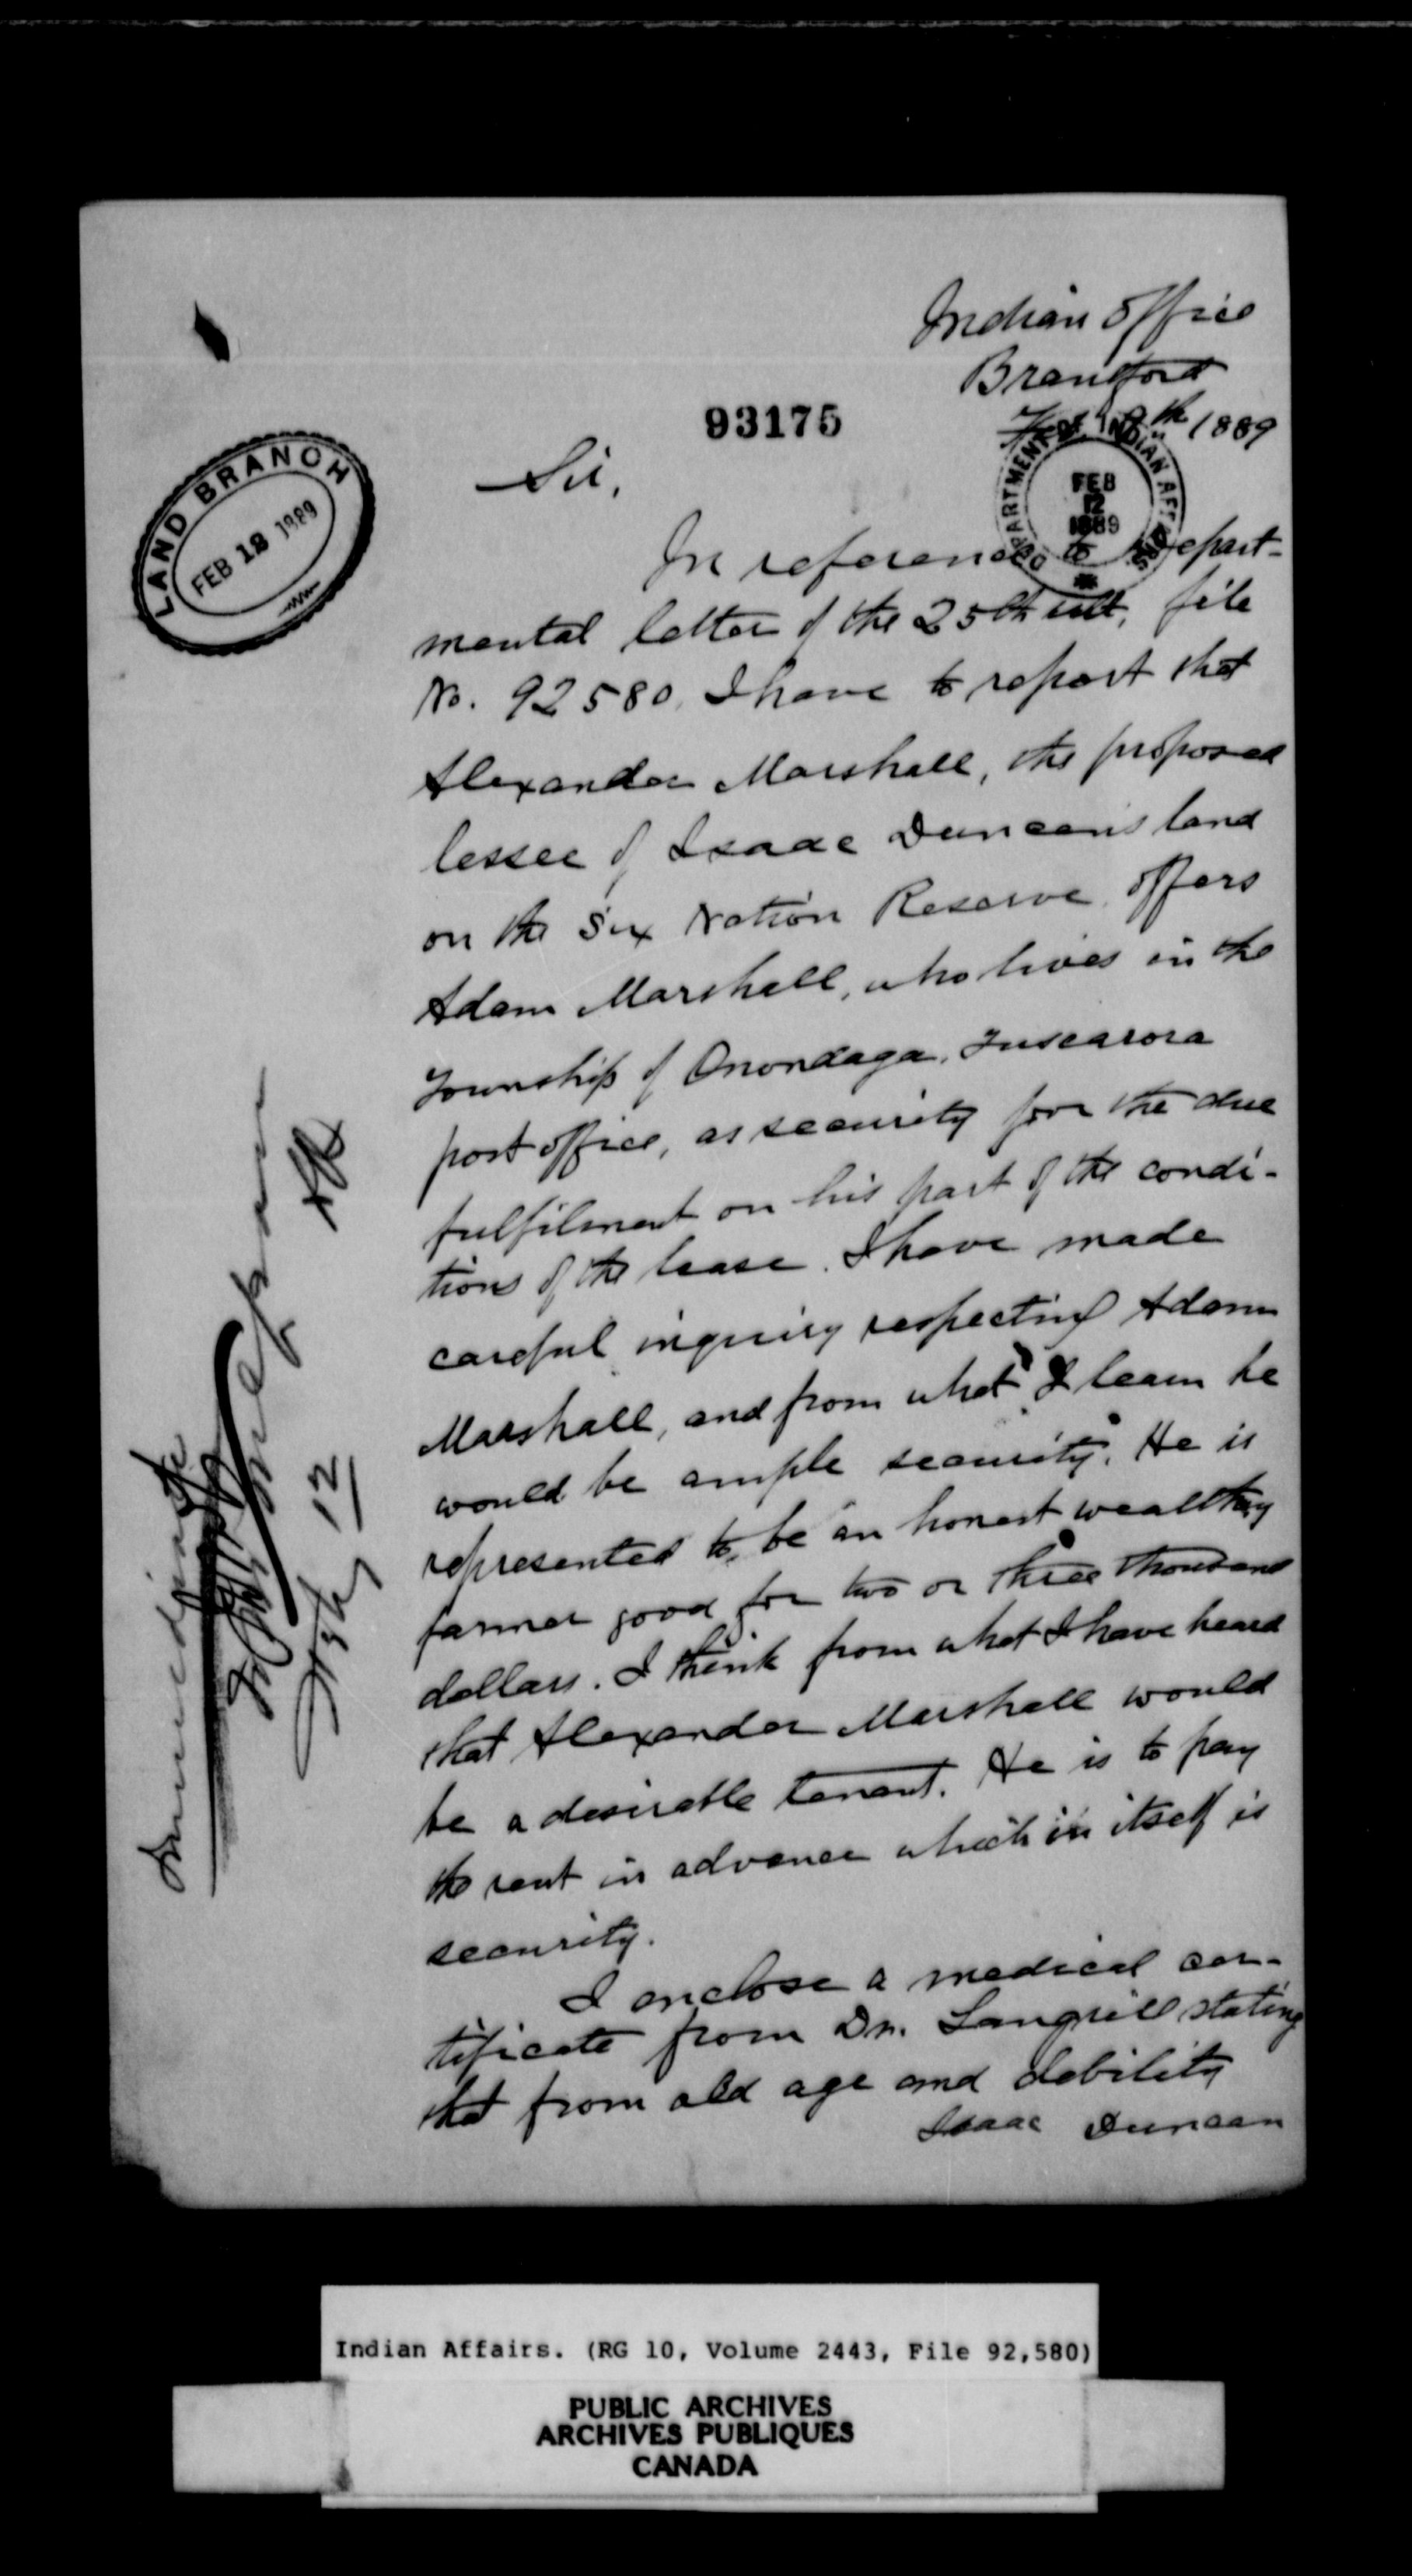 Indian Office
Brantford
93175
th 1889
LAND BRANCH
FEB 18 1889
DEPARTMENT OF INDIAN AFFAIRS
FEB
12
1889
Sir,
In reference to Depart-
mental letter of the 25th ult, file
No. 92580, I have to report that
Alexander Marshall, the proposed
lessee of Isaac Duncan's land
on the Six Nation Reserve, offers
Adam Marshall, who lives in the
Township of Onondaga, Tuscarora
post office, as security for the due
fulfilment on his part of the condi-
tions of the lease. I have made
careful inquiry respecting Adam
Marshall, and from what I learn he
would be ample security. He is
represented to be an honest wealthy
farmer good for two or three thousand
dollars. I think from what I have heard
that Alexander Marshall would
be a desirable tenant. He is to pay
the rent in advance which in itself is
security.
I enclose a medical cer-
tificate from Dr. Langrill stating
that from old age and debility
Isaac Duncan
Immediate
12
Indian Affairs. (RG 10, Volume 2443, File 92,580)
PUBLIC ARCHIVES
ARCHIVES PUBLIQUES
CANADA